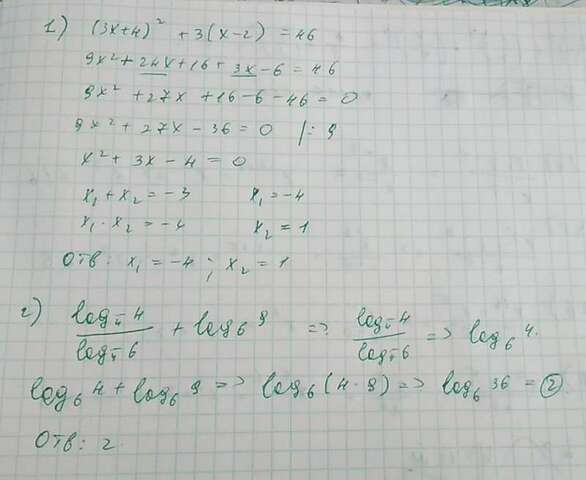 1) (3x+4)² + 3(x-2) = 46
9x² + 24x + 16 + 3x - 6 = 46
9x² + 27x + 16 - 6 - 46 = 0
9x² + 27x - 36 = 0 /: 9
x² + 3x - 4 = 0
x₁ + x₂ = -3 x₁ = -4
x₁ · x₂ = -4 x₂ = 1
Отв: x₁ = -4 ; x₂ = 1
2) log 4 / log 6 + log₆ 9 => log 4 / log 6 => log₆ 4.
log₆ 4 + log₆ 9 => log₆ (4·9) => log₆ 36 = 2
Отв: 2